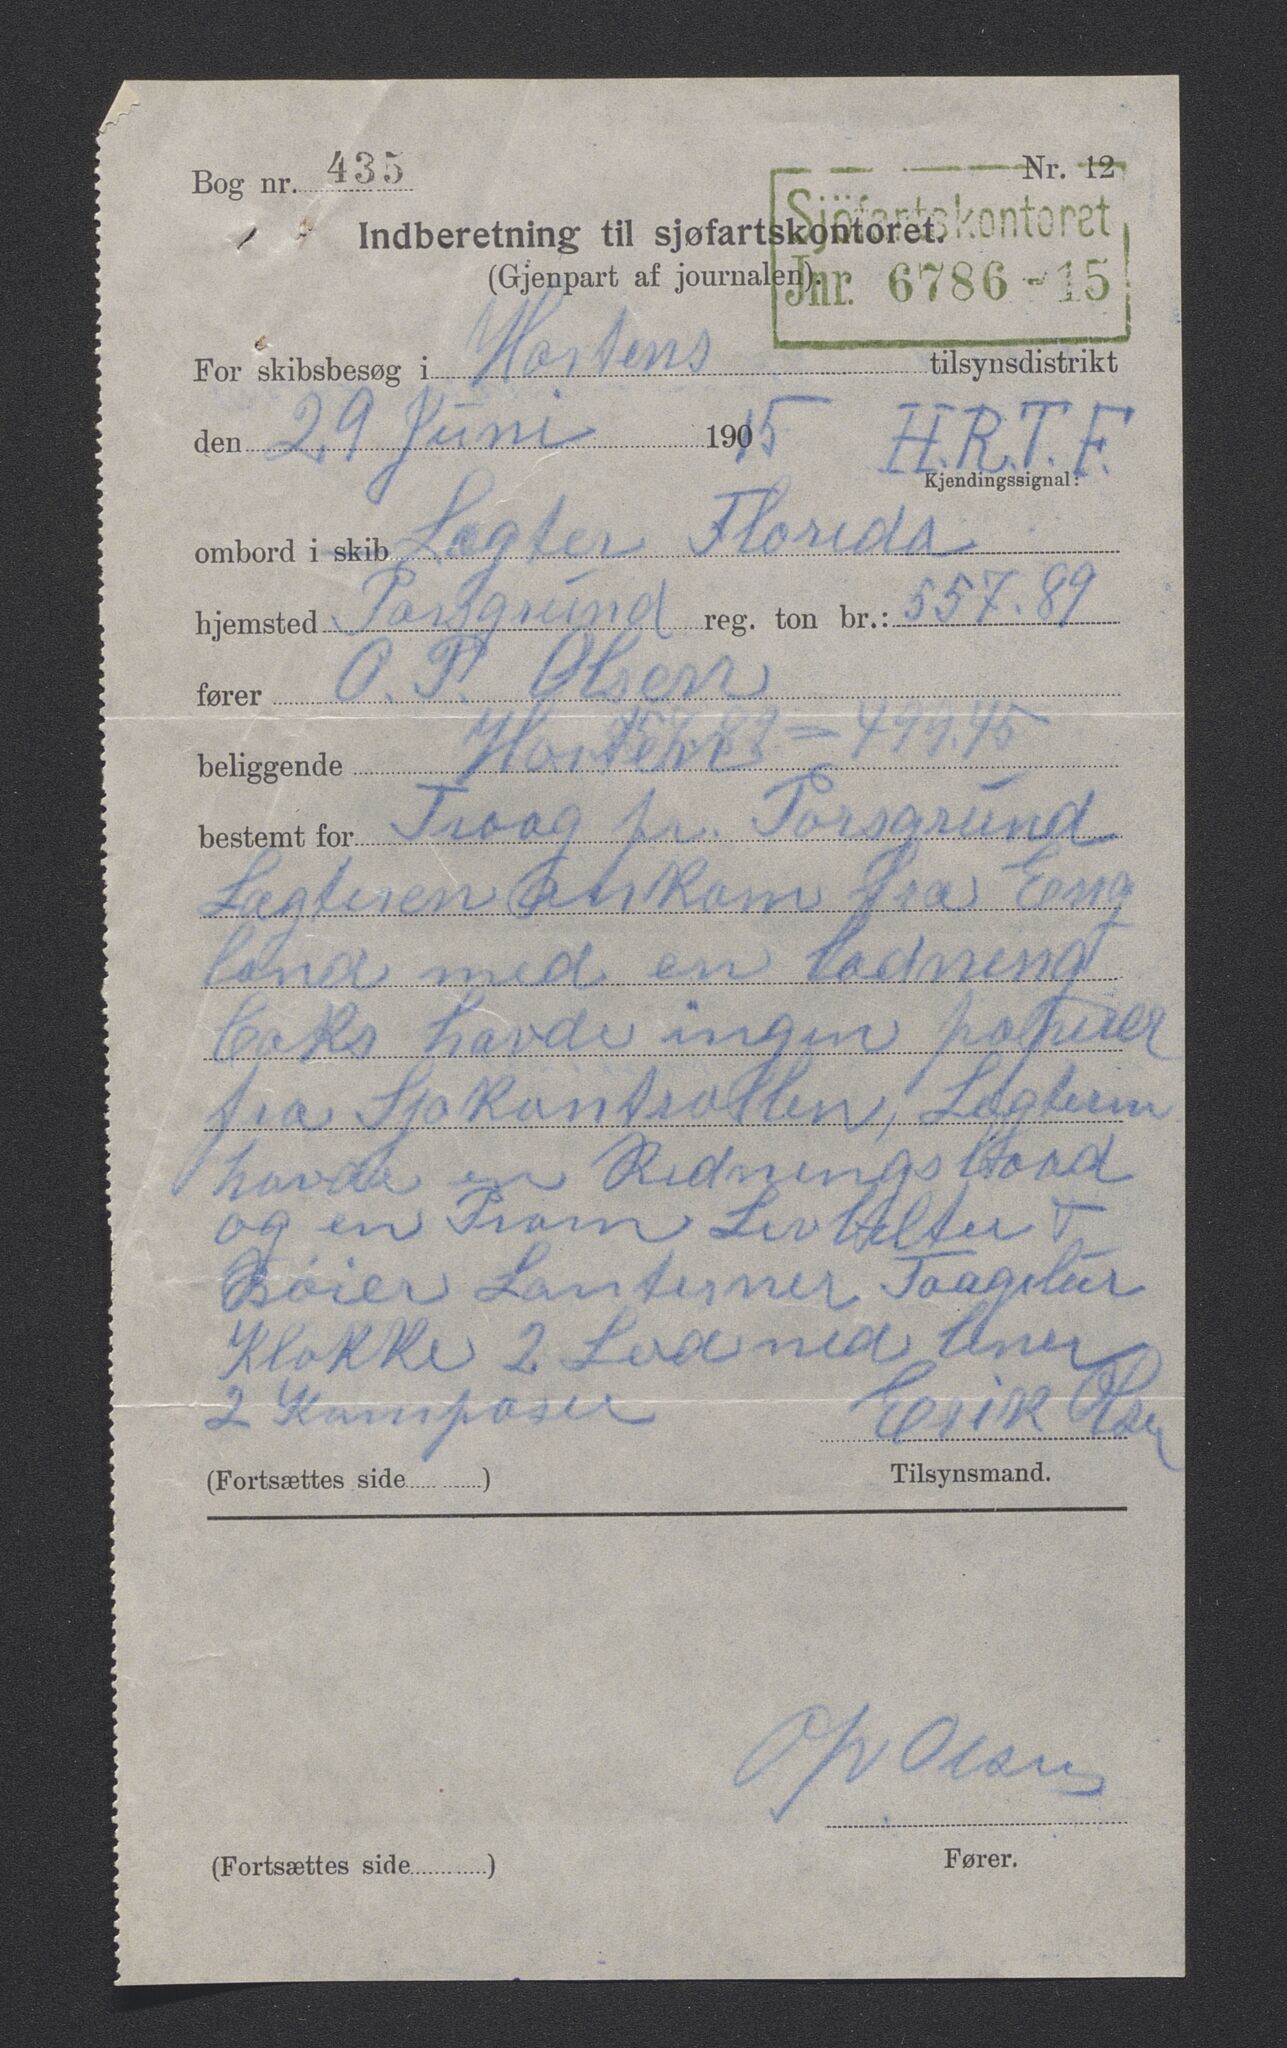 Bog nr. 435 Nr. 12
Sjöfartskontoret
Jnr. 6786-15
Indberetning til sjøfartskontoret.
(Gjenpart af journalen).
For skibsbesøg i Hortens tilsynsdistrikt
den 29 Juni 190 15 H.R.T.F.
Kjendingssignal:
ombord i skib Lægter Florida
hjemsted Porsgrund reg. ton br.: 557.89
fører O. P. Olsen
= 499.45
beliggende Horten
bestemt for Traag pr. Porsgrund
Lægteren ankom fra Eng
land med en ladning
Coks havde ingen papirer
fra Sjøkontrollen, Lægteren
havde en Redningsbaad
og en Pram Livbelter +
Bøier Lanterner Taagelur
Klokke 2 Lod med liner
2 Kompaser Erik Olsen
(Fortsættes side ) Tilsynsmand.
O P Olsen
(Fortsættes side ) Fører.